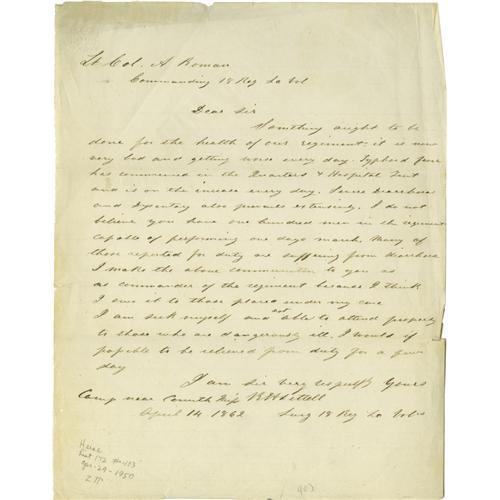 Lt Col. A Roman
Commanding 18 Reg La Vol
Dear Sir
Something ought to be
done for the health of our regiment; it is now
very bad and getting worse every day. Typhoid fever
has commenced in the Quarters & Hospital Tent
and is on the increase every day. Diarrhoea
and Dysentary also prevails extensively. I do not
believe you have one hundred men in the regiment
capable of performing one days march. Many of
those reported for duty are suffering from diarrhoea
I make the above communication to you as
as commander of the regiment because I think
I owe it to those placed under my care
I am sick myself and not able to attend properly
to those who are dangerously ill. I would if
possible to be relieved from duty for a few
day
I am Sir very respectfy yours
Camp near Corinth Miss
April 14 1862 Surg 18 Reg La Vols
Apr-29-1950